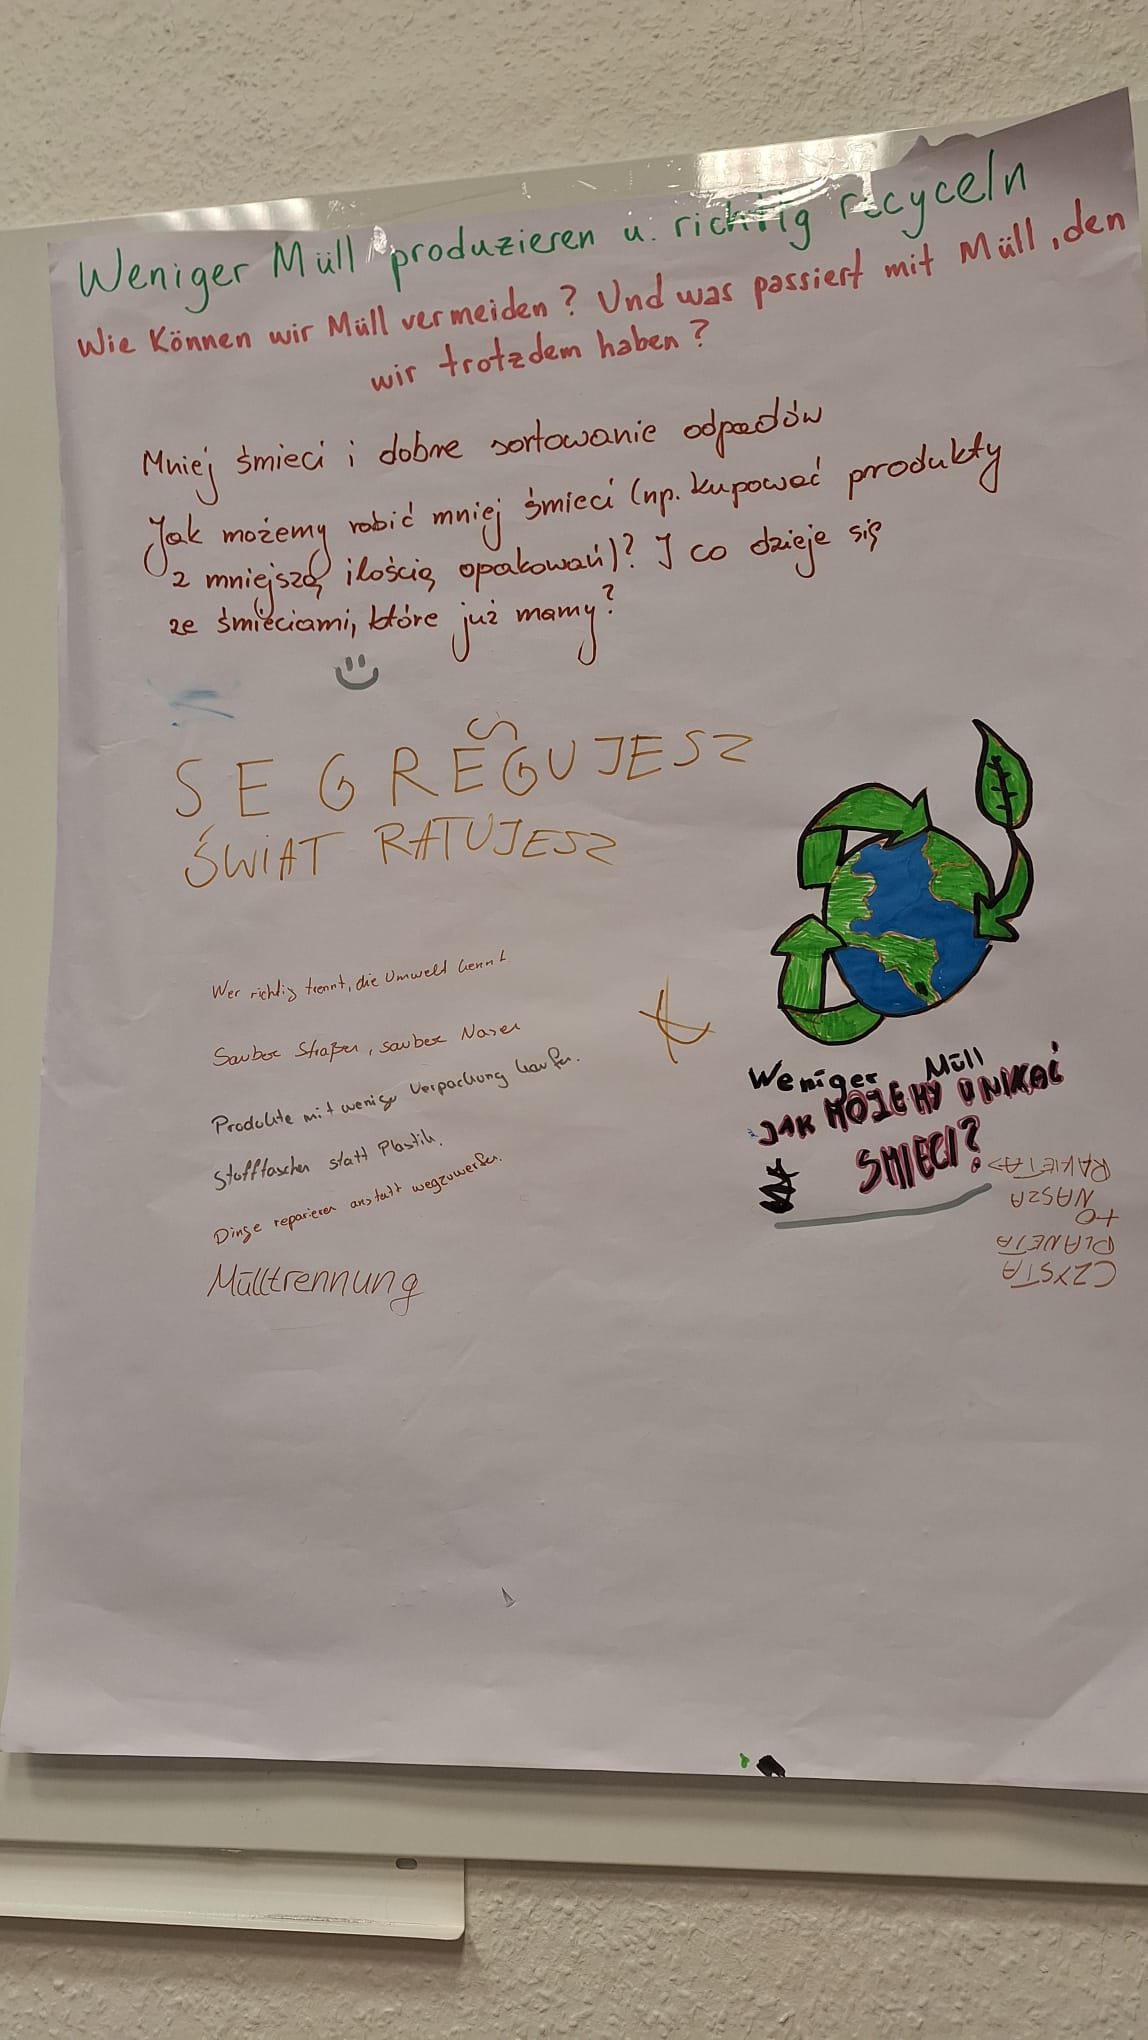 Weniger Müll produzieren u. richtig recyceln
Wie Können wir Müll vermeiden? Und was passiert mit Müll, den
wir trotzdem haben?
Mniej śmieci i dobre sortowanie odpadów
Jak możemy robić mniej śmieci (np. kupować produkty
z mniejszą ilością opakowań)? I co dzieje się
ze śmieciami, które już mamy?
SEGREGUJESZ
ŚWIAT RATUJESZ
Wer richtig trennt, die Umwelt kennt
Sauber Straßen, sauber Nasen
Produkte mit weniger Verpackung kaufen.
Stofftaschen statt Plastik.
Dinge reparieren anstatt wegzuwerfen.
Mülltrennung
Weniger Müll
JAK MOŻEMY UNIKAĆ
ŚMIECI?
CZYSTA
PLANETA
TO
NASZA
RAKIETA